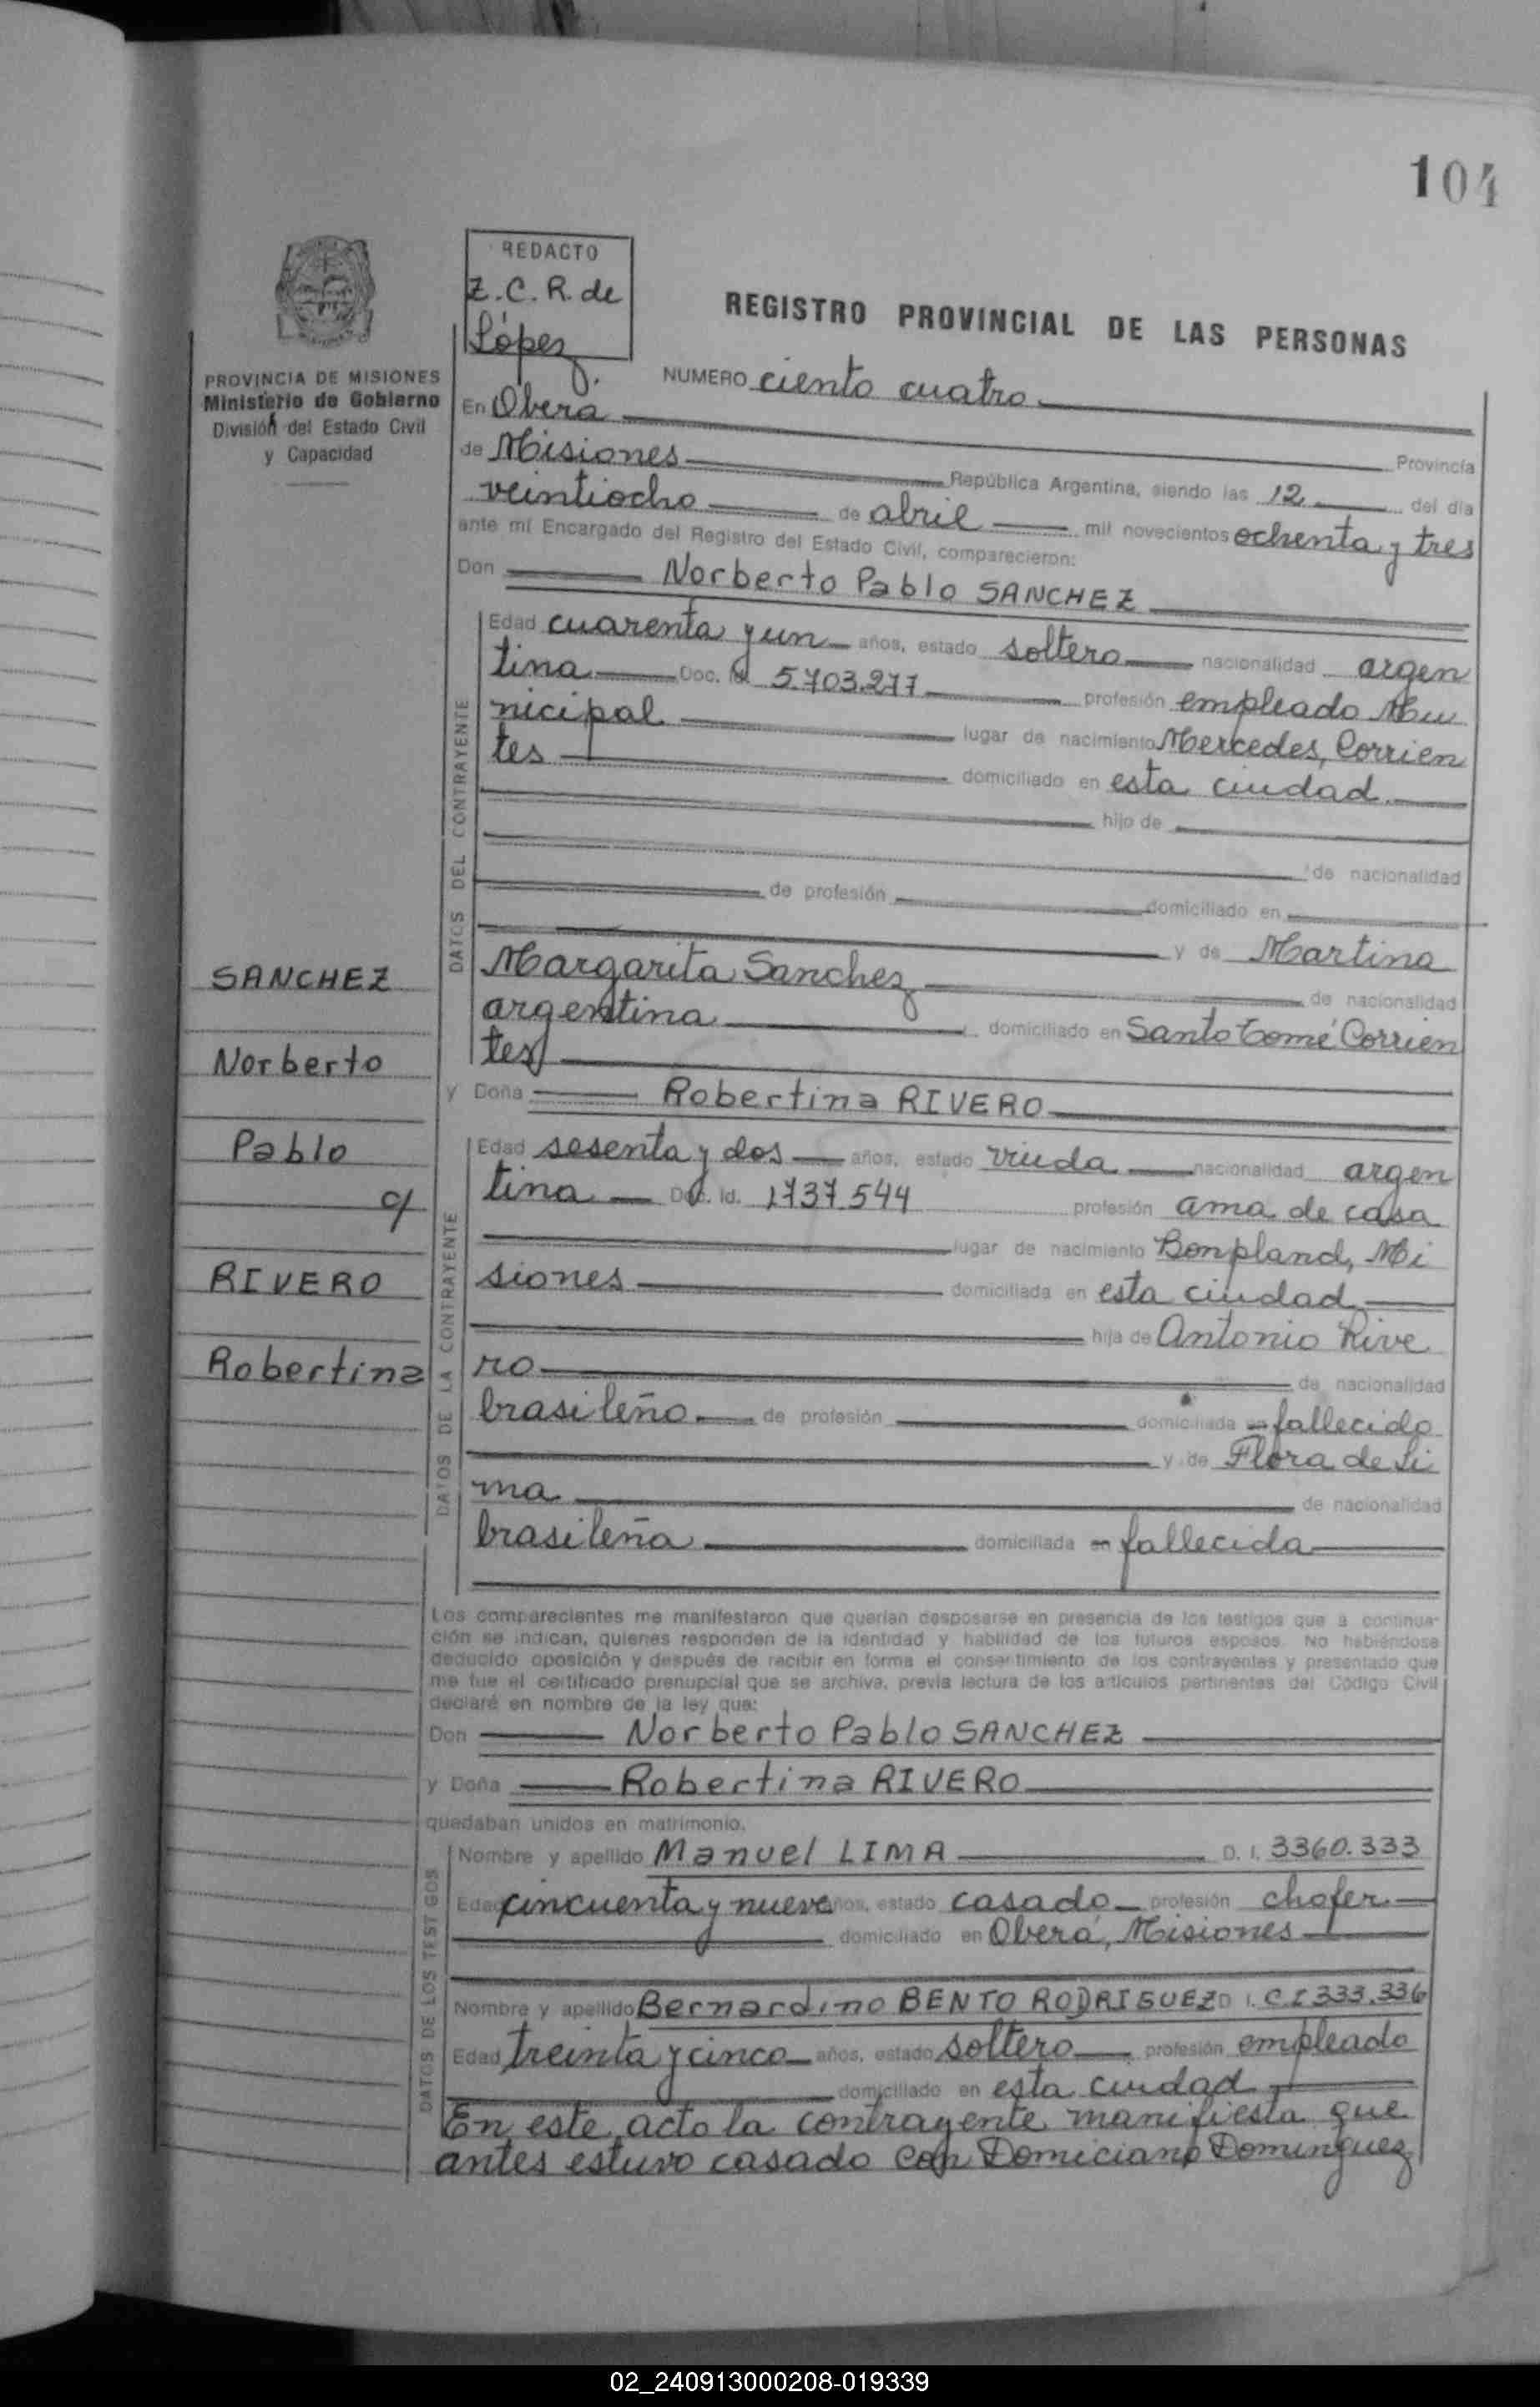 104
REDACTO
Z. C. R. de
López
REGISTRO PROVINCIAL DE LAS PERSONAS
PROVINCIA DE MISIONES
Ministerio de Gobierno
División del Estado Civil
y Capacidad
NUMERO ciento cuatro
En Oberá Provincia
de Misiones República Argentina, siendo las 12 del día
veintiocho de abril mil novecientos ochenta y tres
ante mí Encargado del Registro del Estado Civil, comparecieron:
Don Norberto Pablo SANCHEZ
DATOS DEL CONTRAYENTE
Edad cuarenta y un años, estado soltero nacionalidad argen
tina Doc. Id 5.703.277 profesión empleado Mu
nicipal lugar de nacimiento Mercedes, Corrien
tes domiciliado en esta ciudad
hijo de
de nacionalidad
de profesión domiciliado en
y de Martina
Margarita Sanchez de nacionalidad
argentina domiciliado en Santo Tomé Corrien
tes
SANCHEZ
Norberto
Pablo
c/
RIVERO
Robertina
y Doña Robertina RIVERO
DATOS DE LA CONTRAYENTE
Edad sesenta y dos años, estado viuda nacionalidad argen
tina Doc. Id. 1737.544 profesión ama de casa
lugar de nacimiento Bonpland, Mi
siones domiciliada en esta ciudad
hija de Antonio Rive
ro de nacionalidad
brasileño de profesión domiciliada en fallecido
y de Flora de Li
ma de nacionalidad
brasileña domiciliada en fallecida
Los comparecientes me manifestaron que querían desposarse en presencia de los testigos que a continua-
ción se indican, quienes responden de la identidad y habilidad de los futuros esposos. No habiéndose
deducido oposición y después de recibir en forma el consentimiento de los contrayentes y presentado que
me fue el certificado prenupcial que se archiva, previa lectura de los artículos pertinentes del Código Civil
declaré en nombre de la ley que:
Don Norberto Pablo SANCHEZ
y Doña Robertina RIVERO
quedaban unidos en matrimonio.
DATOS DE LOS TESTIGOS
Nombre y apellido Manuel LIMA D. I. 3360.333
Edad cincuenta y nueve años, estado casado profesión chofer
domiciliado en Oberá, Misiones
Nombre y apellido Bernardino BENTO RODRIGUEZ D. I. C.I 333.336
Edad treinta y cinco años, estado soltero profesión empleado
domiciliado en esta ciudad
En este acto la contrayente manifiesta que
antes estuvo casado con Domiciano Dominguez
02_240913000208-019339